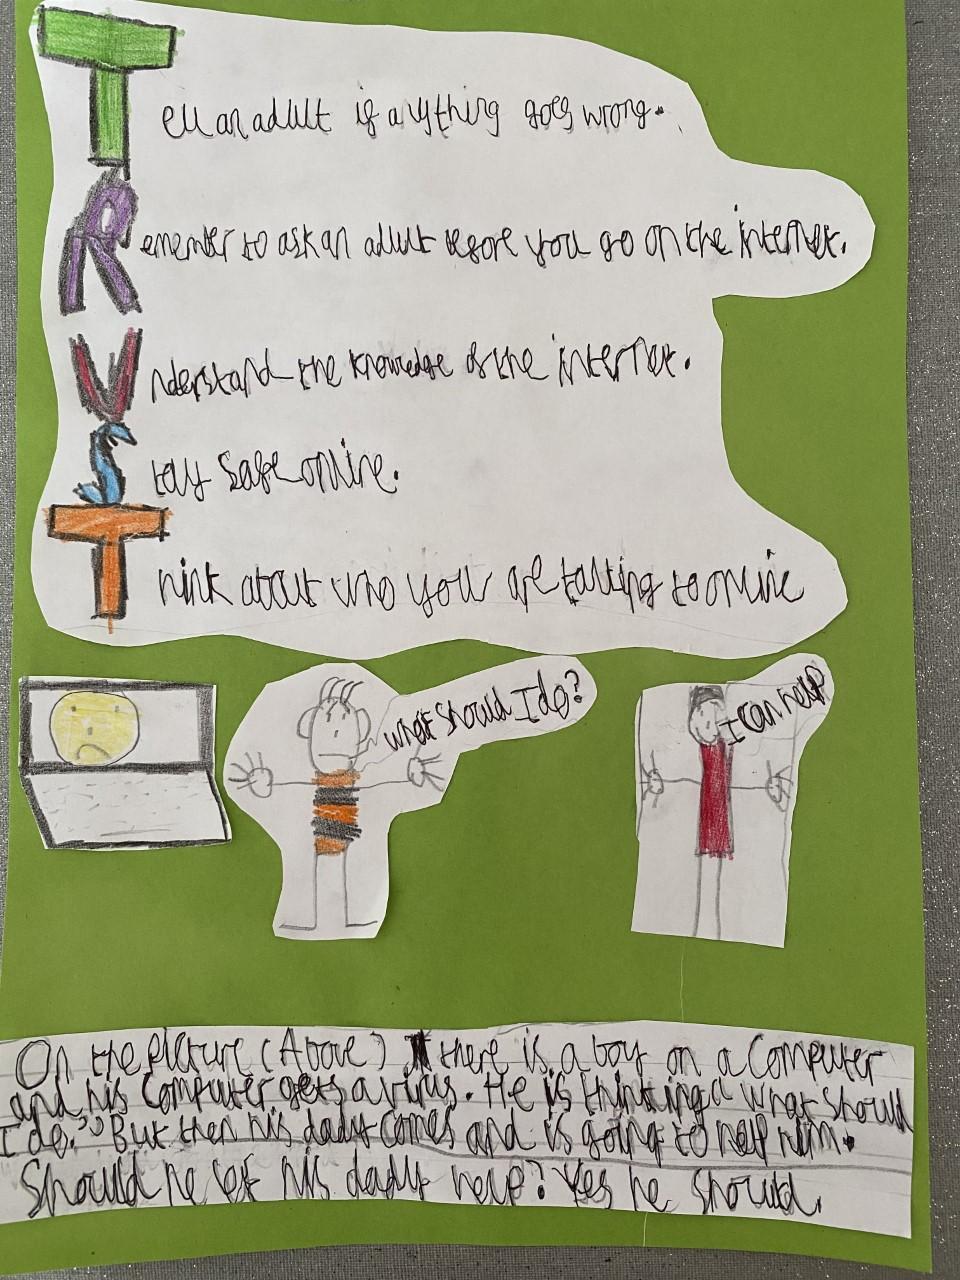 Tell an adult if anything goes wrong.
Remember to ask an adult before you go on the internet.
Understand the knowledge of the internet.
Stay safe online.
Think about who you are talking to online
What should I do?
I can help
On the picture (Above) there is a boy on a computer
and his computer gets a virus. He is thinking "what should
I do." But then his dady comes and is going to help him.
Should he let his dady help? Yes he should.